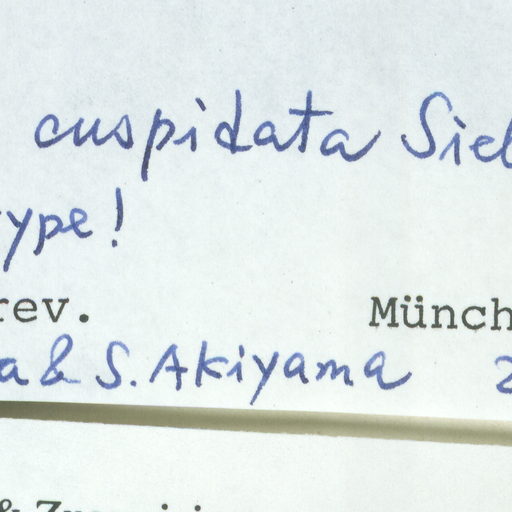 cuspidata Sieb
ype!
rev. Münch
a & S. Akiyama 2
& Zuccarini